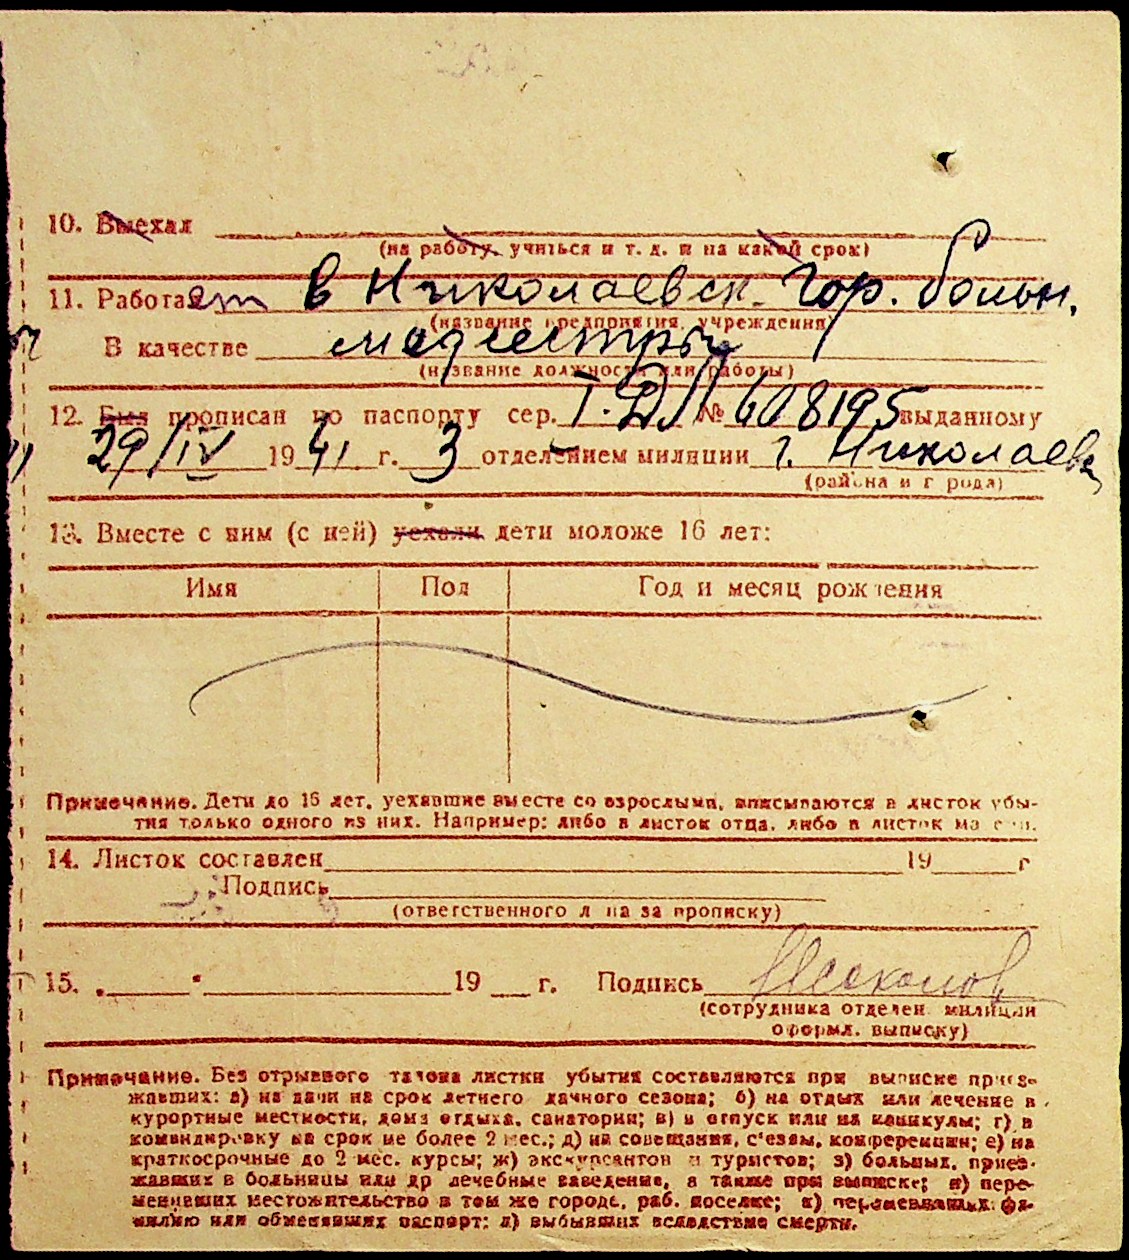 10. Выехал
(на работу, учиться и т. д. и на какой срок)
11. Работает в Николаевск. Гор. больн.
(название предприятия, учреждения)
В качестве медсестры
(название должности или работы)
12. Был прописан по паспорту сер. I. ДЛ № 608195 выданному
29/IV 1941 г. 3 отделением милиции г. Николаева
(района и города)
13. Вместе с ним (с ней) уехали дети моложе 16 лет:
Имя Пол Год и месяц рождения
Примечание. Дети до 16 лет, уехавшие вместе со взрослыми, вписываются в листок убы-
тия только одного из них. Например: либо в листок отца, либо в листок матери.
14. Листок составлен 19 г
Подпись
(ответственного лица за прописку)
15. „ " 19 г. Подпись
(сотрудника отделен. милиции
оформл. выписку)
Примечание. Без отрывного талона листки убытия составляются при выписке приез-
жавших: а) на дачи на срок летнего дачного сезона; б) на отдых или лечение в
курортные местности, дома отдыха, санатории; в) в отпуск или на каникулы; г) в
командировку на срок не более 2 мес.; д) на совещания, с'езды, конференции; е) на
краткосрочные до 2 мес. курсы; ж) экскурсантов и туристов; з) больных, приез-
жавших в больницы или др лечебные заведения, а также при выписке; и) пере-
менивших местожительство в том же городе, раб. поселке; к) переменивших фа-
милию или обменявших паспорт; л) выбывших вследствие смерти.